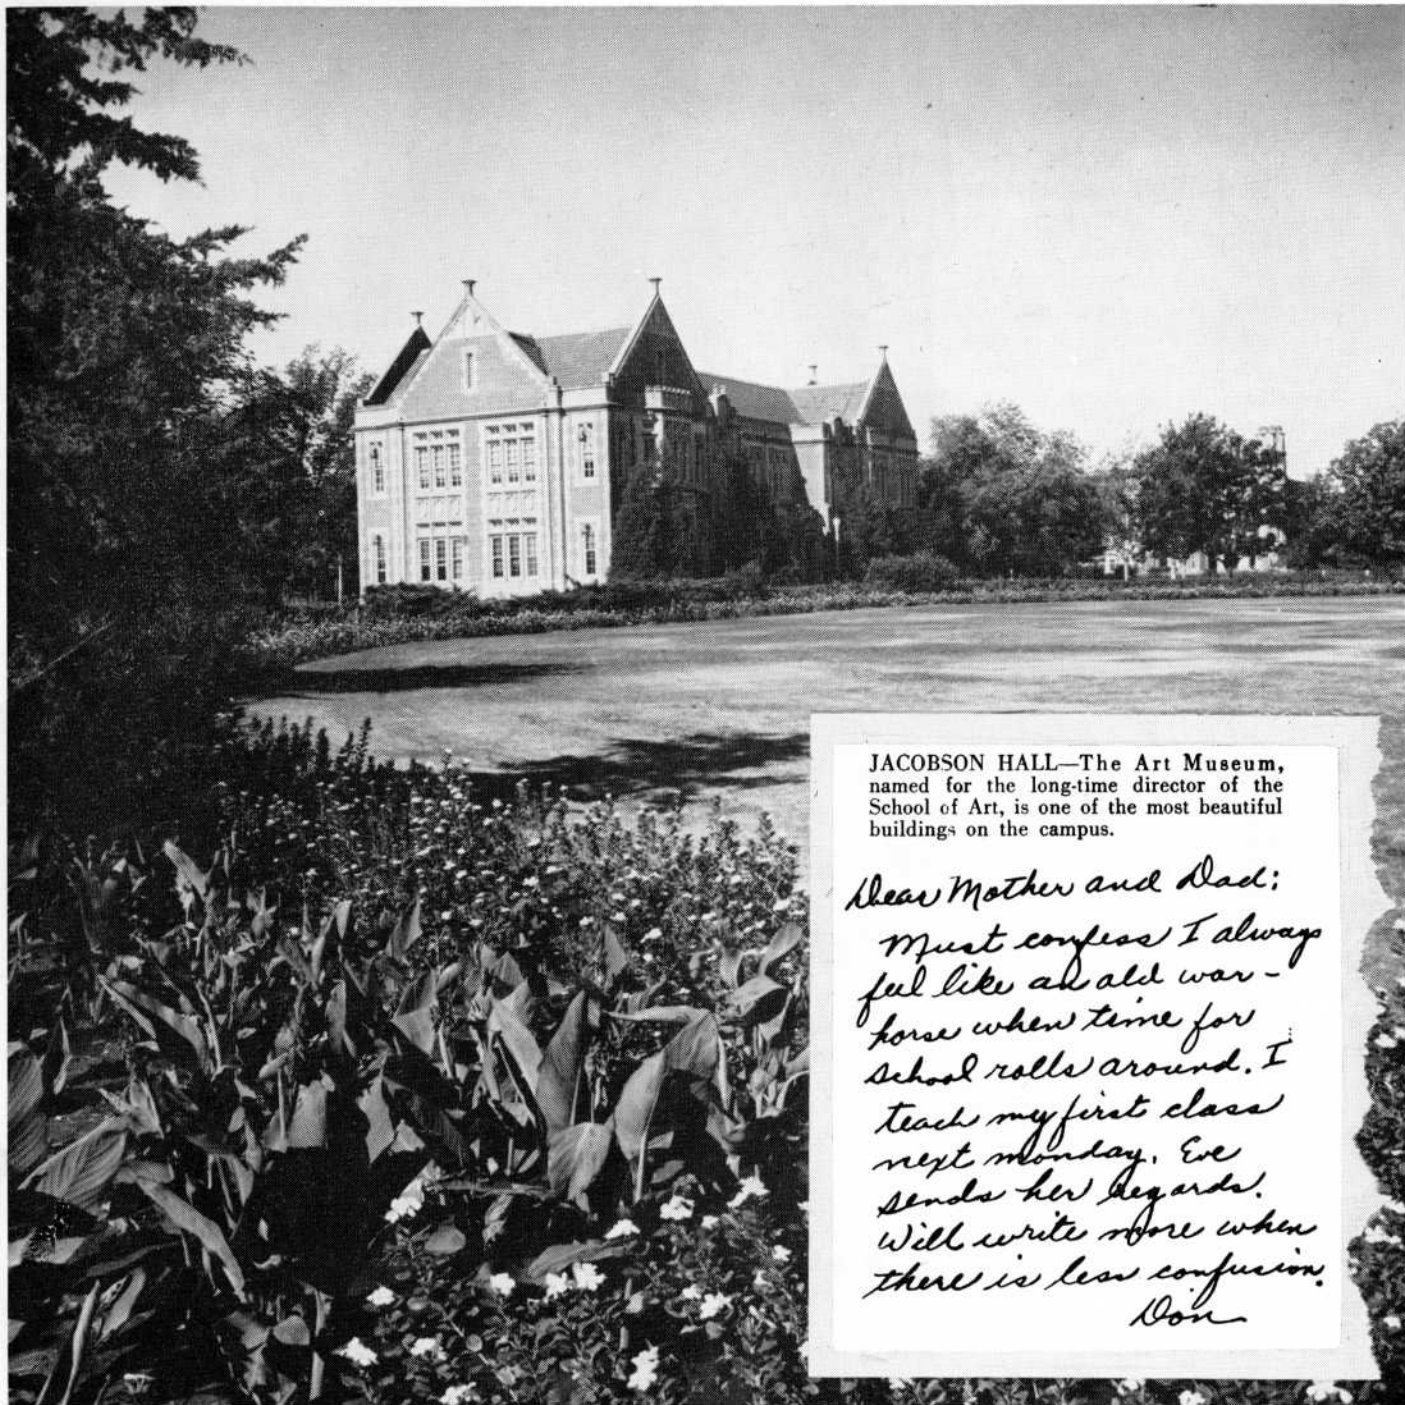 JACOBSON HALL—The Art Museum,
named for the long-time director of the
School of Art, is one of the most beautiful
buildings on the campus.
Dear Mother and Dad:
Must confess I always
feel like an old war-
horse when time for
school rolls around. I
teach my first class
next monday. Eve
sends her regards.
Will write more when
there is less confusion.
Don